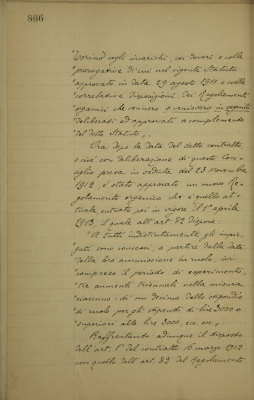 866
Torino) cogli incarichi, coi doveri e colle
prerogative di cui nel vigente Statuto
approvato in data 29 agosto 1911 e nelle
correlative disposizioni dei Regolamenti
organici che vennero o venissero in seguito
deliberati ed approvati a complemento
del detto Statuto,.
Ora dopo la data del detto contratto
e cioè con deliberazione di questo Con-
siglio presa in seduta del 23 novembre
1912, è stato approvato un nuovo Re-
golamento organico che è quello at-
tuale entrato poi in vigore il 1° aprile
1913, il quale all'art. 82 dispone:
"A tutti indistintamente gli impie-
gati sono concessi a partire dalla data
della loro ammissione in ruolo, ivi
compreso il periodo di esperimento,
tre aumenti triennali nella misura
ciascuno: di un decimo dello stipendio
di ruolo per gli stipendi di lire 3000 o
superiori alle lire 3000, ecc. ecc.,
Raffrontando adunque il disposto
dell'art. 1° del contratto 16 marzo 1912
con quello dell'art. 82 del Regolamento